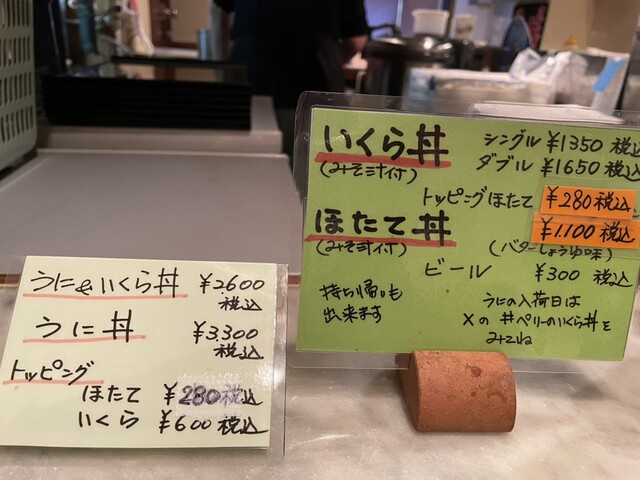 うに&いくら丼 ¥2600
税込
うに丼 ¥3,300
税込
トッピング
ほたて ¥280税込
いくら ¥600税込
いくら丼 シングル ¥1350 税込
(みそ汁付) ダブル ¥1650 税込
トッピングほたて ¥280税込
ほたて丼 ¥1,100税込
(みそ汁付) (バターしょうゆ味)
ビール ¥300 税込
持ち帰りも
出来ます
うにの入荷日は
Xの 丼ペリーのいくら丼を
みてね